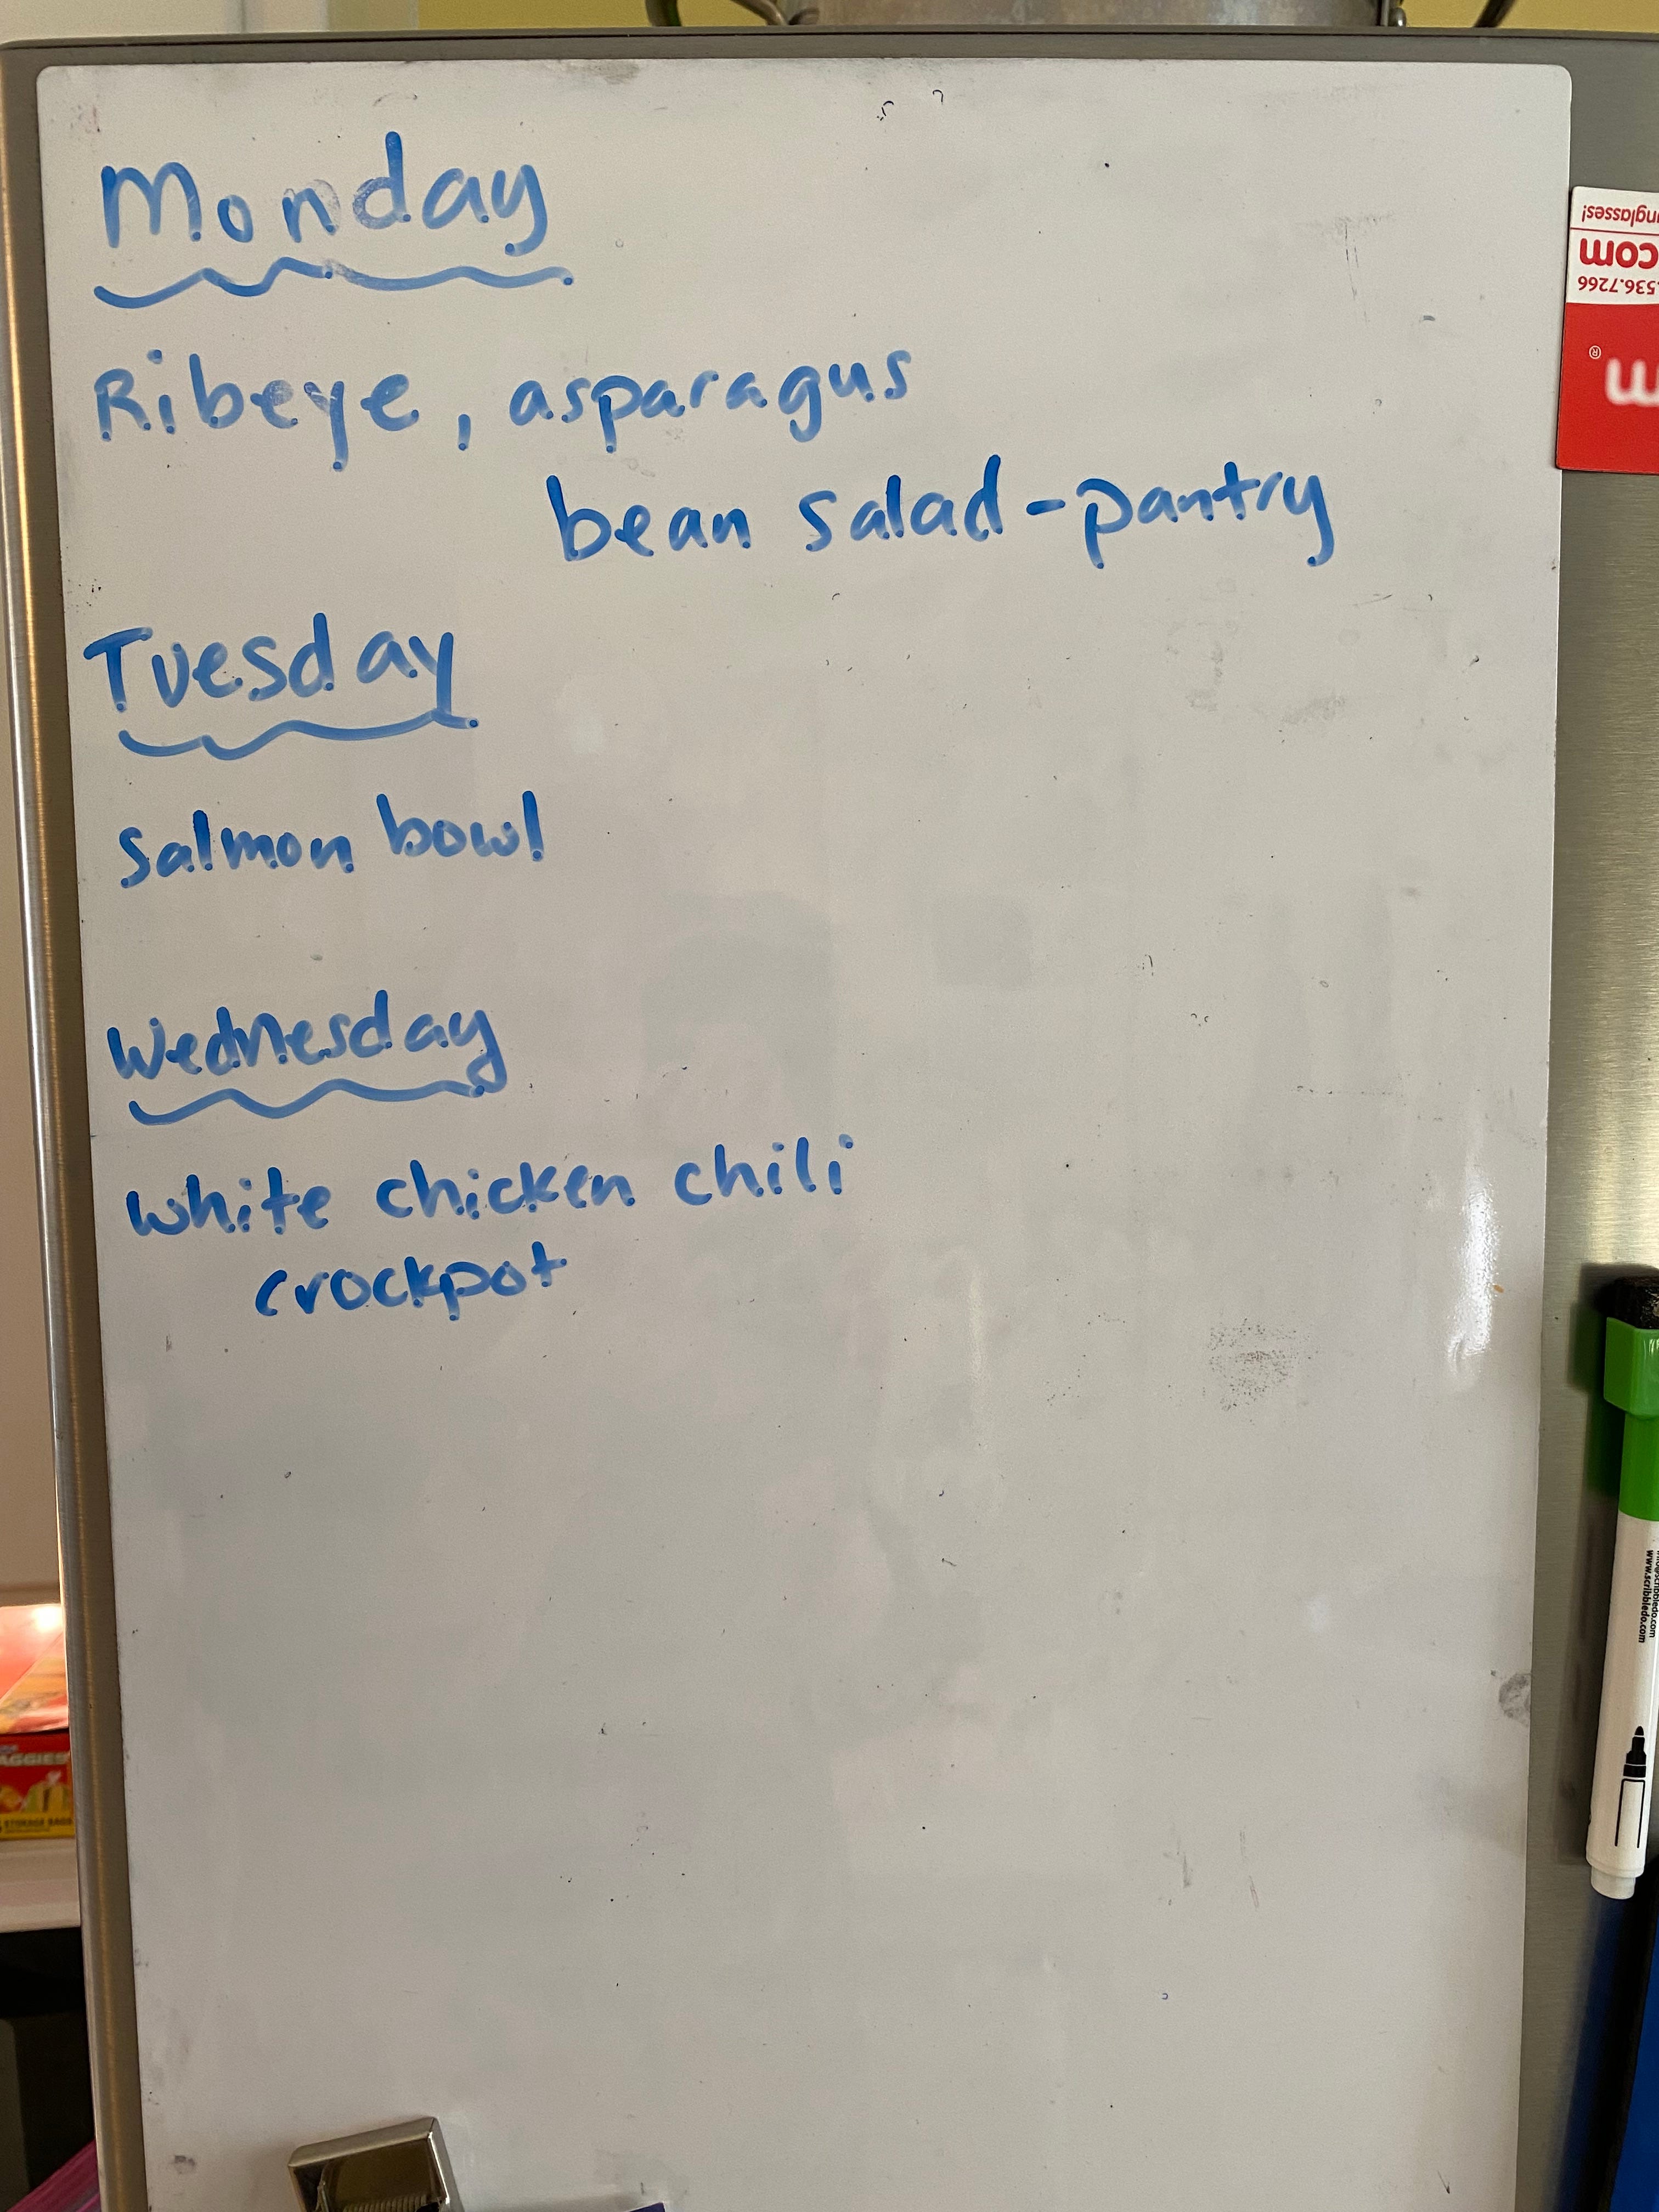 Monday
Ribeye, asparagus
bean salad - pantry
Tuesday
Salmon bowl
Wednesday
White chicken chili
crockpot
.com
.536.7266
®
www.scribbledo.com
STORAGE BAGS